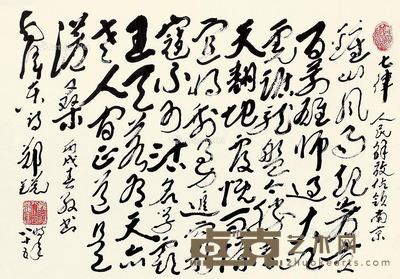 七律 人民解放佔领南京
钟山风雨起苍黄
百万雄师过大江
虎踞龙盘今胜昔
天翻地覆慨而慷
宜将剩勇追穷
寇不可沽名学霸
王天若有情天亦
老人间正道是
沧桑 丙戌春敬书
毛泽东诗 郑
卓克艺术网